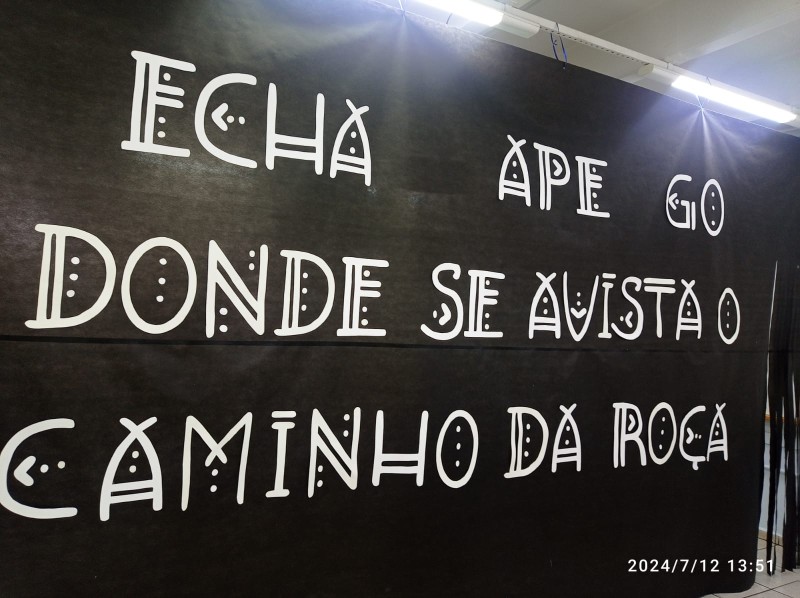 ECHA APE GO
DONDE SE AVISTA O
CAMINHO DA ROÇA
2024/7/12 13:51